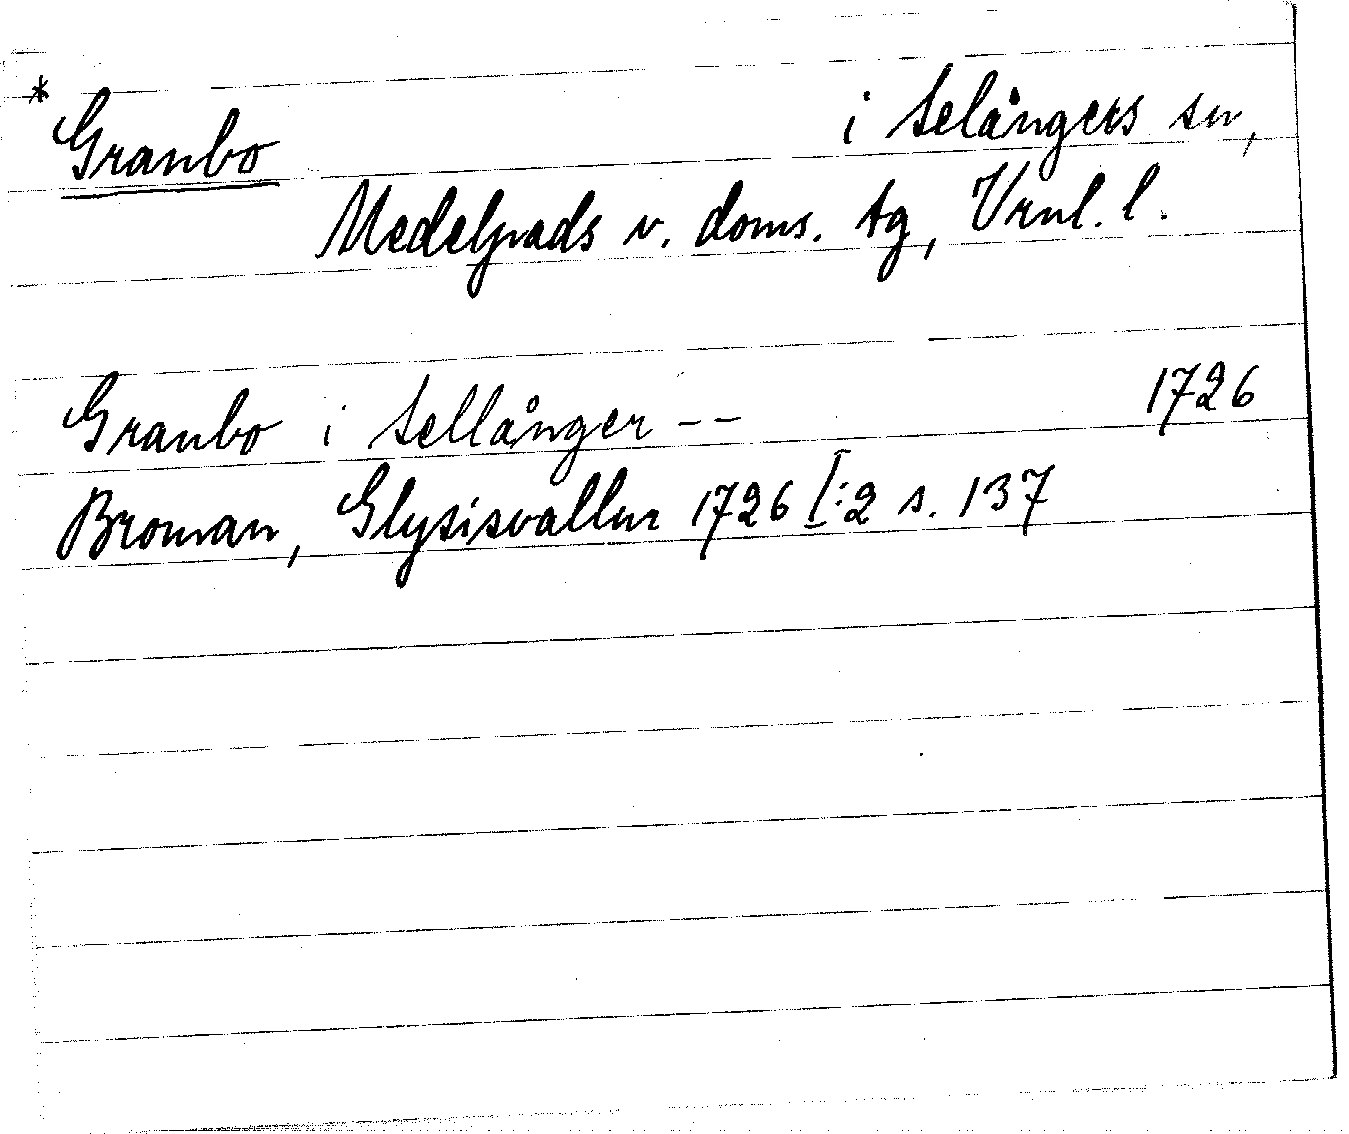 * Granbo i Selångers sn,
Medelpads v. doms. tg, Vrnl. l.
Granbo i Sellånger -- 1726
Broman, Glysisvallur 1726 I:2 s. 137